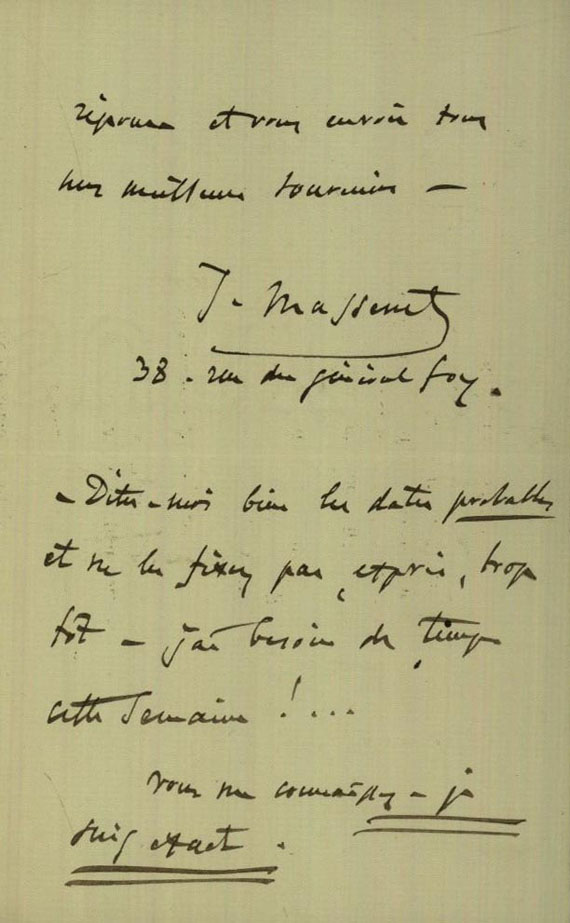 réponse et vous envoie tous
mes meilleurs souvenirs —
J. Massenet
38. rue du général Foy.
— Dites-moi bien les dates probables
et ne les fixez pas, exprès, trop
tôt — j'ai besoin de temps
cette semaine ! ...
vous me connaissez — je
suis exact.